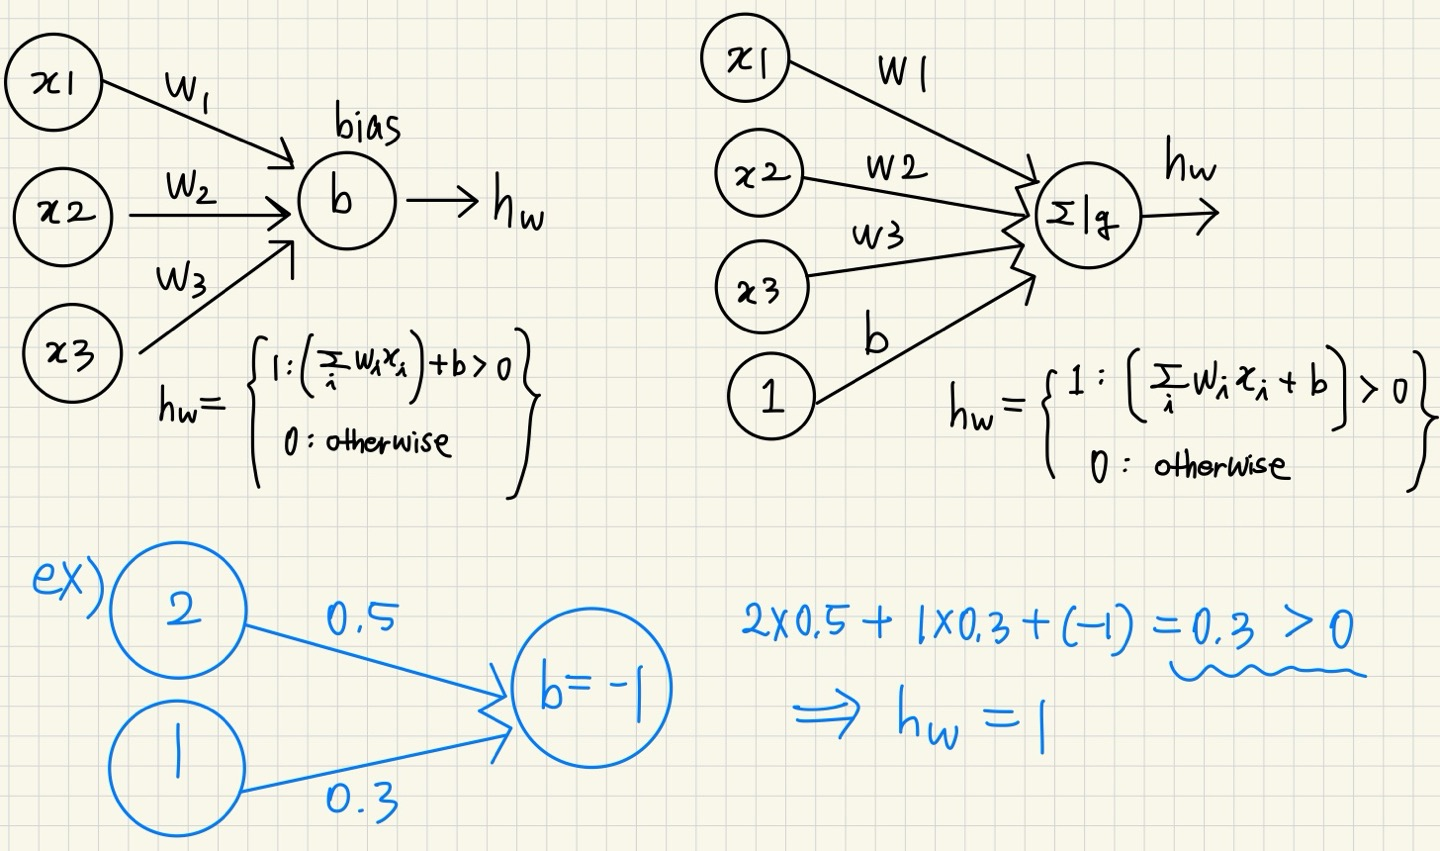 x1
w₁
bias
x2
w₂
b
h_w
w₃
x3
h_w = { 1 : (Σ_i w_i x_i) + b > 0
0 : otherwise }
x1
w1
x2
w2
h_w
Σ|g
w3
x3
b
1
h_w = { 1 : (Σ_i w_i x_i + b) > 0
0 : otherwise }
ex)
2
0.5
b = -1
1
0.3
2×0.5 + 1×0.3 + (-1) = 0.3 > 0
⇒ h_w = 1